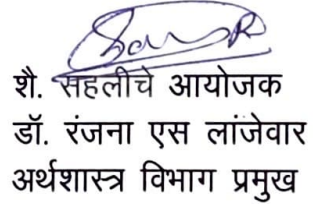 शै. सहलीचे आयोजक
डॉ. रंजना एस लांजेवार
अर्थशास्त्र विभाग प्रमुख